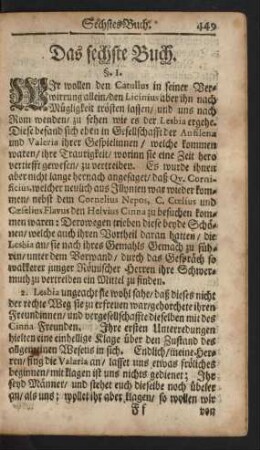 Sechstes Buch. 449
Das sechste Buch.
§. 1.
WIr wollen den Catullus in seiner Ver-
wirrung allein/ den Licinius aber ihn nach
Mügligkeit trösten lassen/ und uns nach
Rom wenden/ zu sehen wie es der Lesbia ergehe.
Diese befand sich eben in Gesellschafft der Aufilena
und Valeria ihrer Gespielinnen/ welche kommen
waren/ ihre Traurigkeit/ worinn sie eine Zeit hero
vertiefft gewesen/ zu vertreiben. Es wurde ihnen
aber nicht lange hernach angesaget/ daß Qv. Corni-
ficius, welcher neulich aus Illyrien was wieder kom-
men/ nebst dem Cornelius Nepos, C. Cœlius und
Cæselius Flavus den Helvius Cinna zu besuchen kom-
men waren: Derowegen trieben diese beyde Schö-
nen/ welche auch ihren Vortheil daran hatten/ die
Lesbia an/ sie nach ihres Gemahls Gemach zu füh-
ren/ unter dem Vorwand/ durch das Gespräch so
wackerer junger Römischer Herren ihre Schwer-
muth zu vertreiben ein Mittel zu finden.
2. Lesbia ungeacht sie wohl sahe/ daß dieses nicht
der rechte Weg sie zu erfreuen war/ gehorchete ihren
Freundinnen/ und vergesellschaffte dieselben mit des
Cinna Freunden. Ihre ersten Unterredungen
hielten eine einhellige Klage über den Zustand des
allgemeinen Wesens in sich. Endlich/ meine Her-
ren/ fing die Valeria an/ lasset uns etwas fröliches
beginnen/ mit klagen ist uns nichts gedienet; Ihr
seyd Männer/ und stehet euch dieselbe noch übeler
an/ als uns; wollet ihr aber klagen/ so wollen wir
Ff von